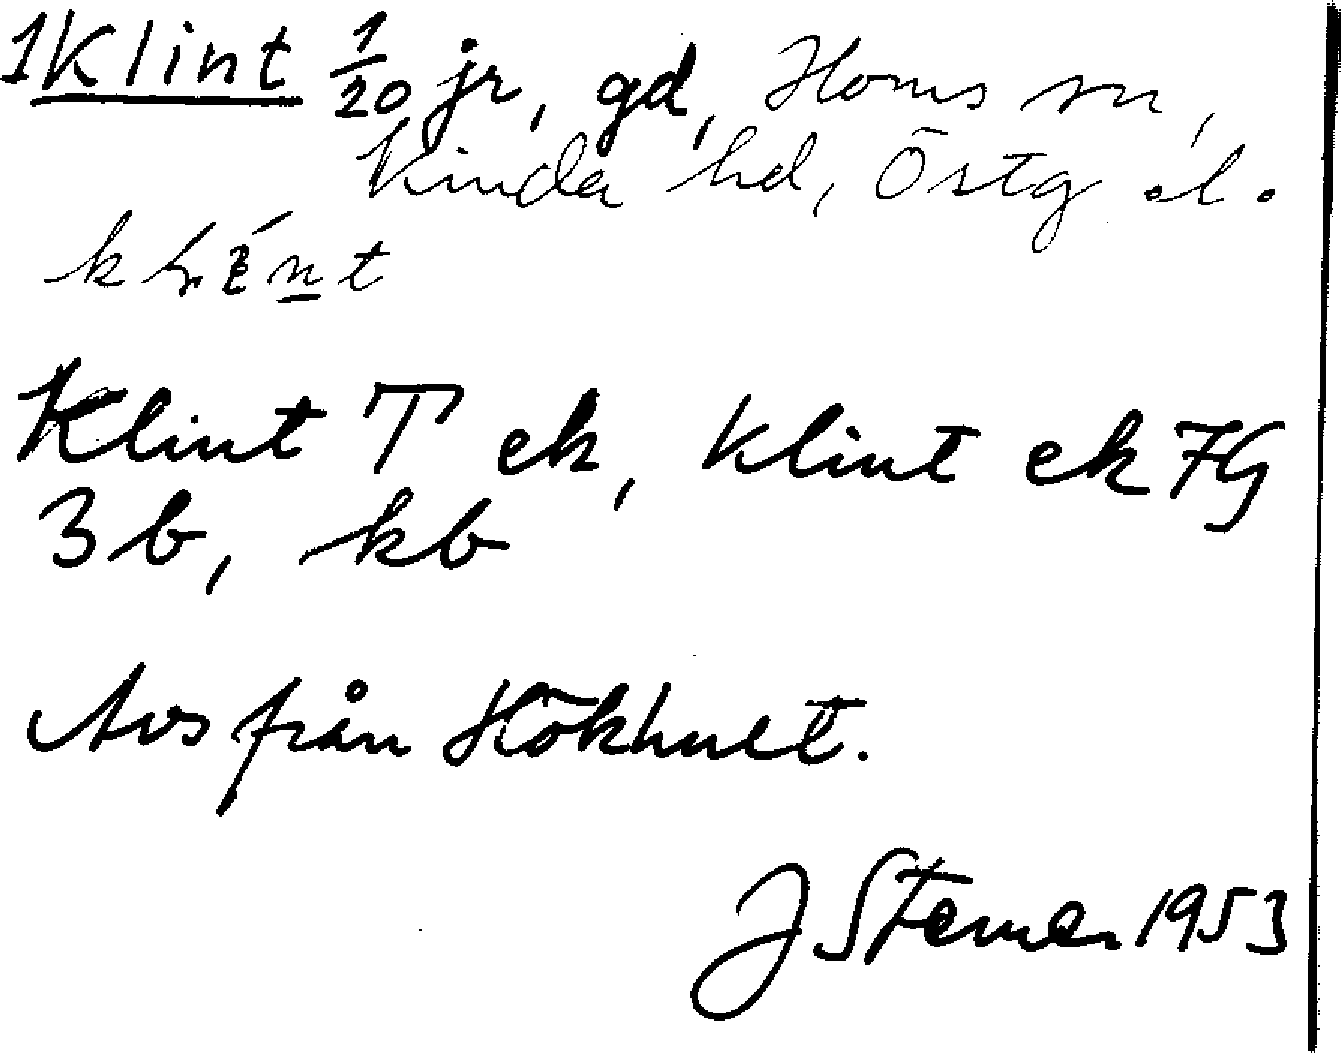 1 Klint 1/20 jr, gd, Horns sn,
Kinda hd, Östg. l.
Klint T ek, Klint ek 7G
3b, kb
Avs från Hökhult.
J Sterner 1953